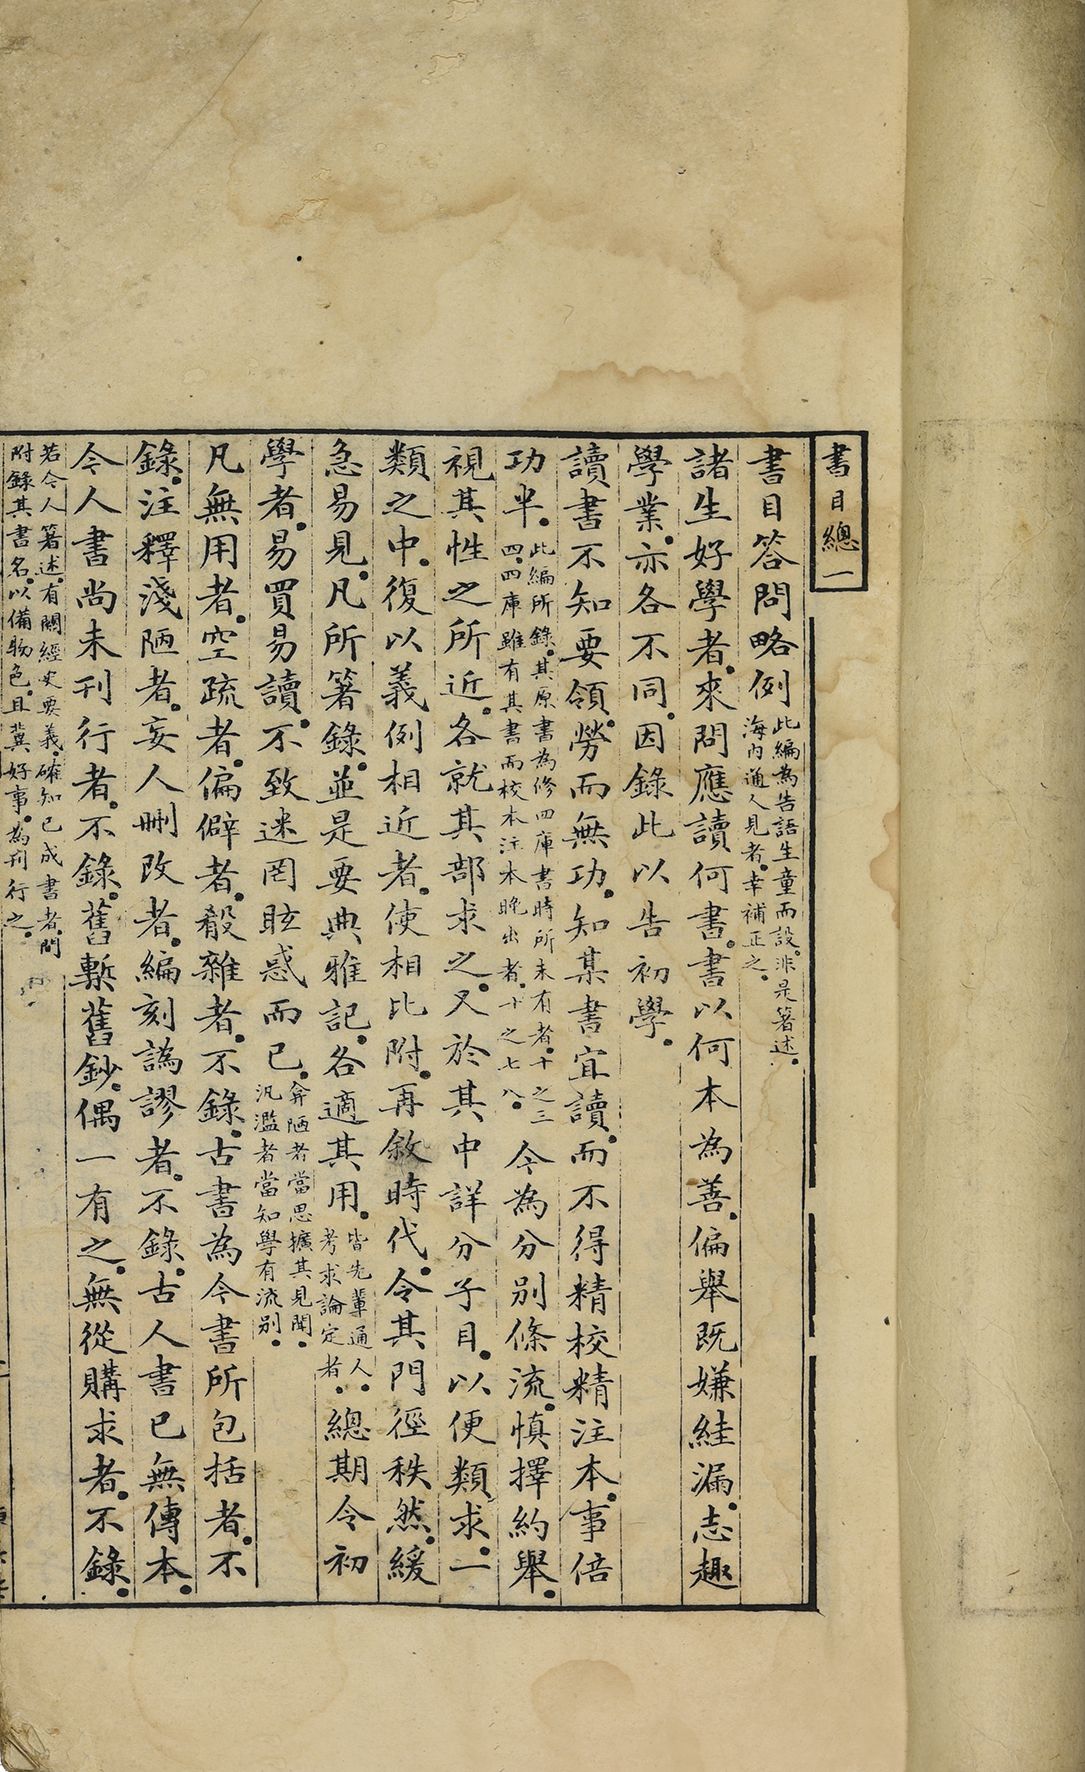 書目總一
書目答問略例此編為告語生童而設。非是著述。海內通人見者。幸補正之。
諸生好學者。來問應讀何書。書以何本為善。偏舉既嫌絓漏。志趣
學業。亦各不同。因錄此以告初學。
讀書不知要領。勞而無功。知某書宜讀。而不得精校精注本。事倍
功半。此編所錄。其原書為修四庫書時所未有者。十之三四。四庫雖有其書而校本注本晚出者。十之七八。今為分別條流。慎擇約舉。
視其性之所近。各就其部求之。又於其中詳分子目。以便類求。一
類之中。復以義例相近者。使相比附。再敘時代。令其門徑秩然。緩
急易見。凡所箸錄。並是要典雅記。各適其用。皆先輩通人。考求論定者。總期令初
學者。易買易讀。不致迷罔眩惑而已。弇陋者當思擴其見聞。汎濫者當知學有流別。
凡無用者。空疏者。偏僻者。殽雜者。不錄。古書為今書所包括者。不
錄。注釋淺陋者。妄人刪改者。編刻譌謬者。不錄。古人書已無傳本。
今人書尚未刊行者。不錄。舊槧舊鈔。偶一有之。無從購求者。不錄。
若今人箸述。有關經史要義。確知已成書者。間附錄其書名。以備物色。且冀好事。為刊行之。